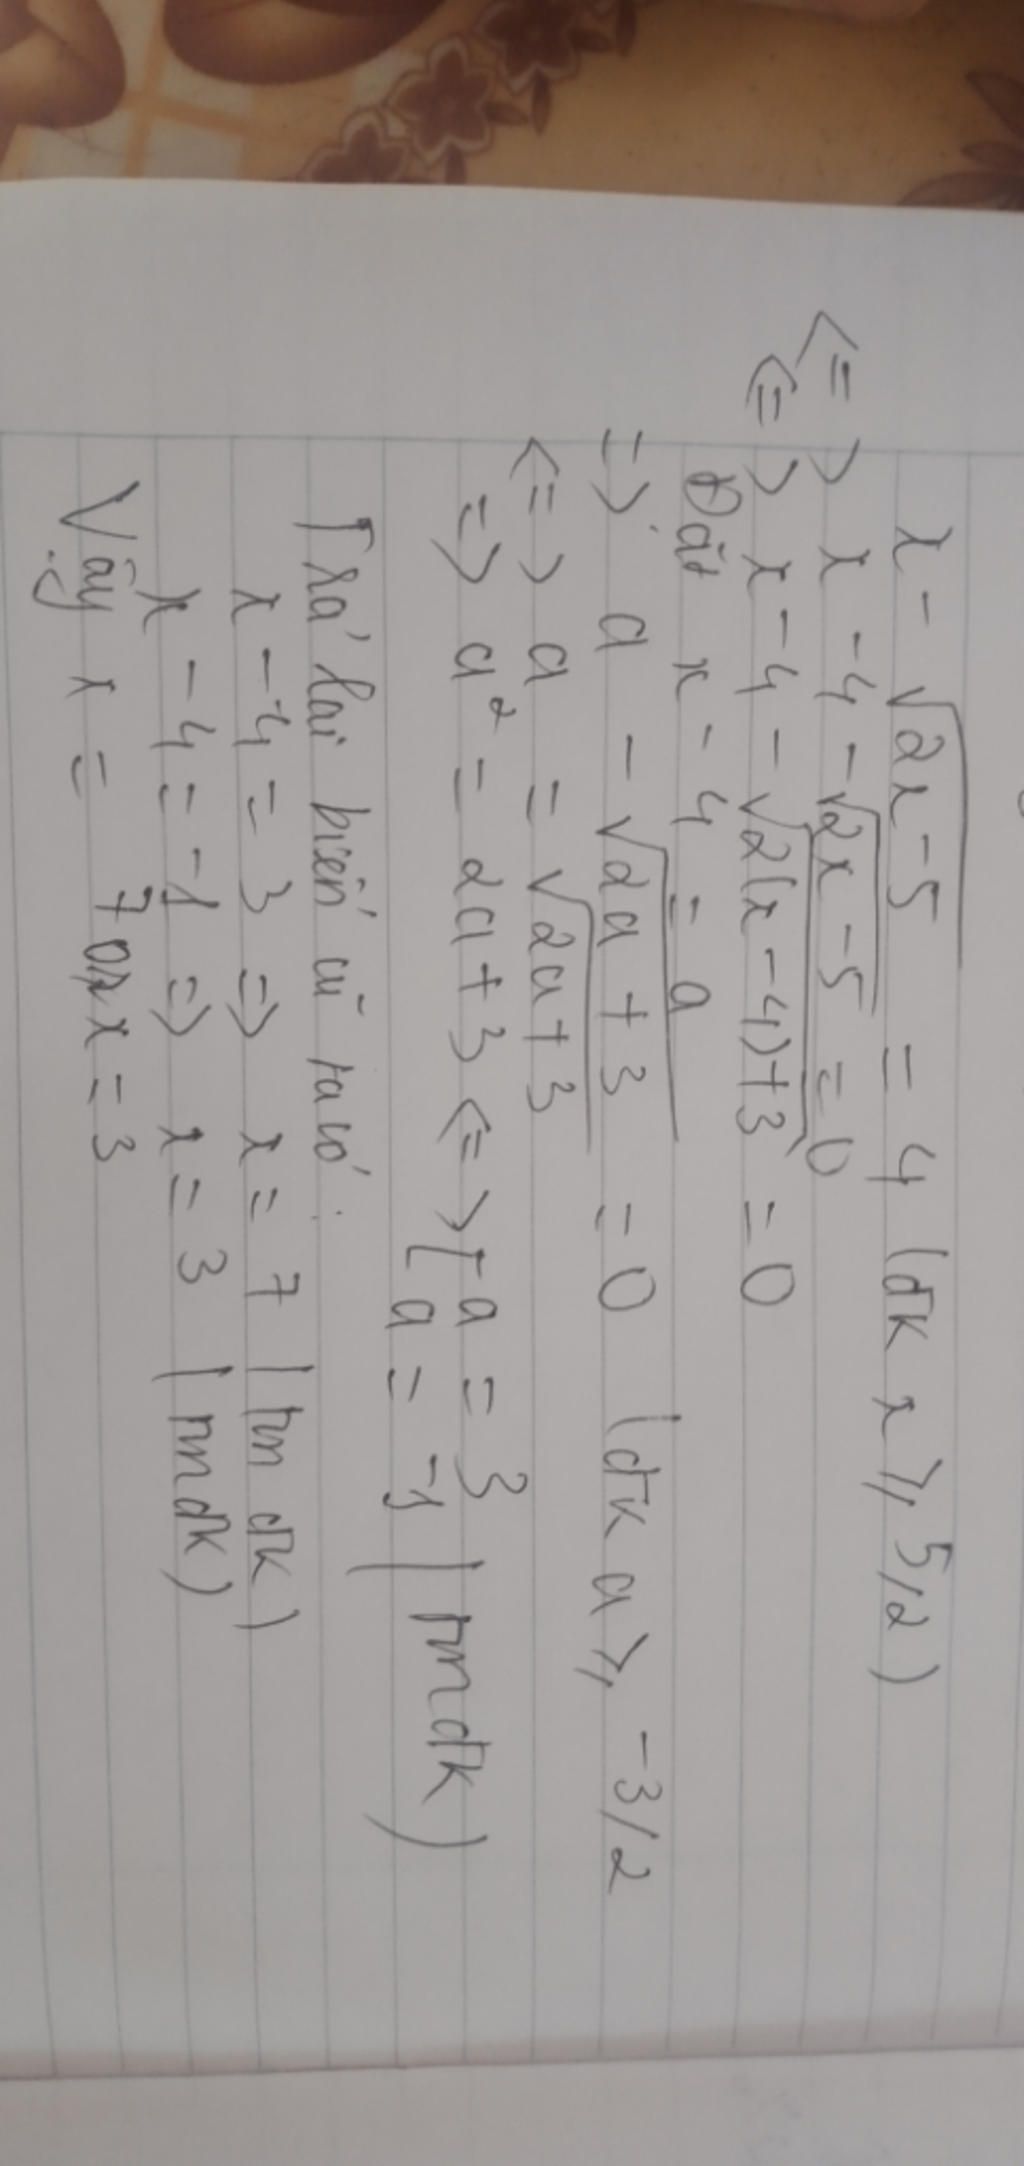 x - √2x-5 = 4 (đk x ≥ 5/2)
<=> x - 4 - √2x-5 = 0
<=> x - 4 - √2(x-4)+3 = 0
Đặt x - 4 = a
=> a - √2a+3 = 0 (đk a ≥ -3/2
<=> a = √2a+3
=> a² = 2a+3 <=> [ a = 3
[ a = -1 (tmđk)
Trả lại biến cũ ta có :
x - 4 = 3 => x = 7 (tm đk)
x - 4 = -1 => x = 3 (tmđk)
Vậy x = 7 or x = 3